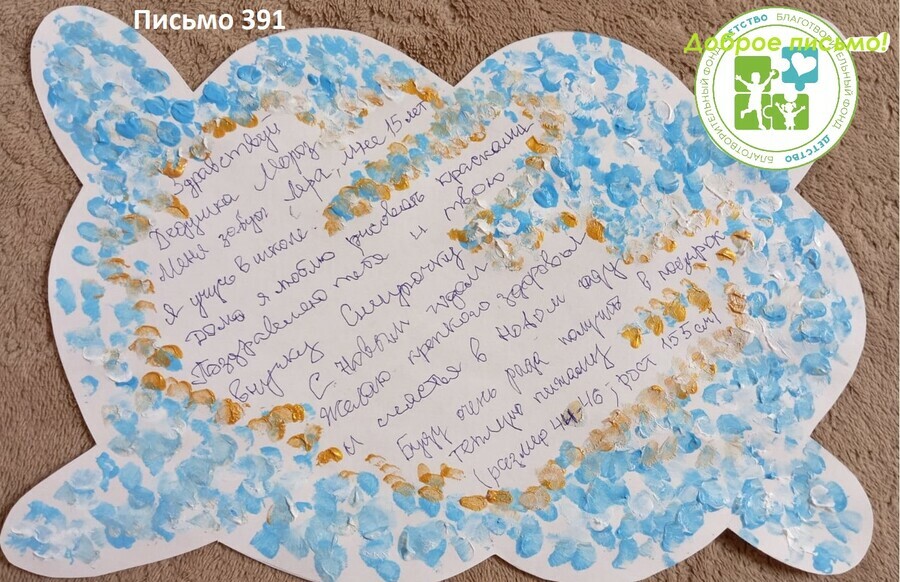 Письмо 391
Доброе письмо!
БЛАГОТВОРИТЕЛЬНЫЙ ФОНД ДЕТСТВО БЛАГОТВОРИТЕЛЬНЫЙ ФОНД ДЕТСТВО
Здравствуй
Дедушка Мороз
Меня зовут Лера, мне 15 лет
Я учусь в школе.
Дома я люблю рисовать красками
Поздравляю тебя и твою
внучку Снегурочку
С Новым годом
Желаю крепкого здоровья
и счастья в Новом году
Буду очень рада получить в подарок
теплую пижаму
(размер 44-46; рост 155 см)